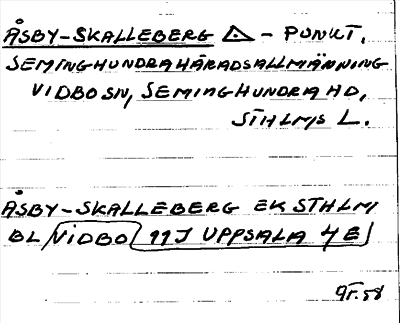 ÅSBY-SKALLEBERG △ - PUNKT.
SEMINGHUNDRAHÄRADSALLMÄNNING
VIDBO SN, SEMINGHUNDRA HD,
STHLMS L.
ÅSBY-SKALLEBERG EK STHLM
BL VIDBO 11J UPPSALA 4E